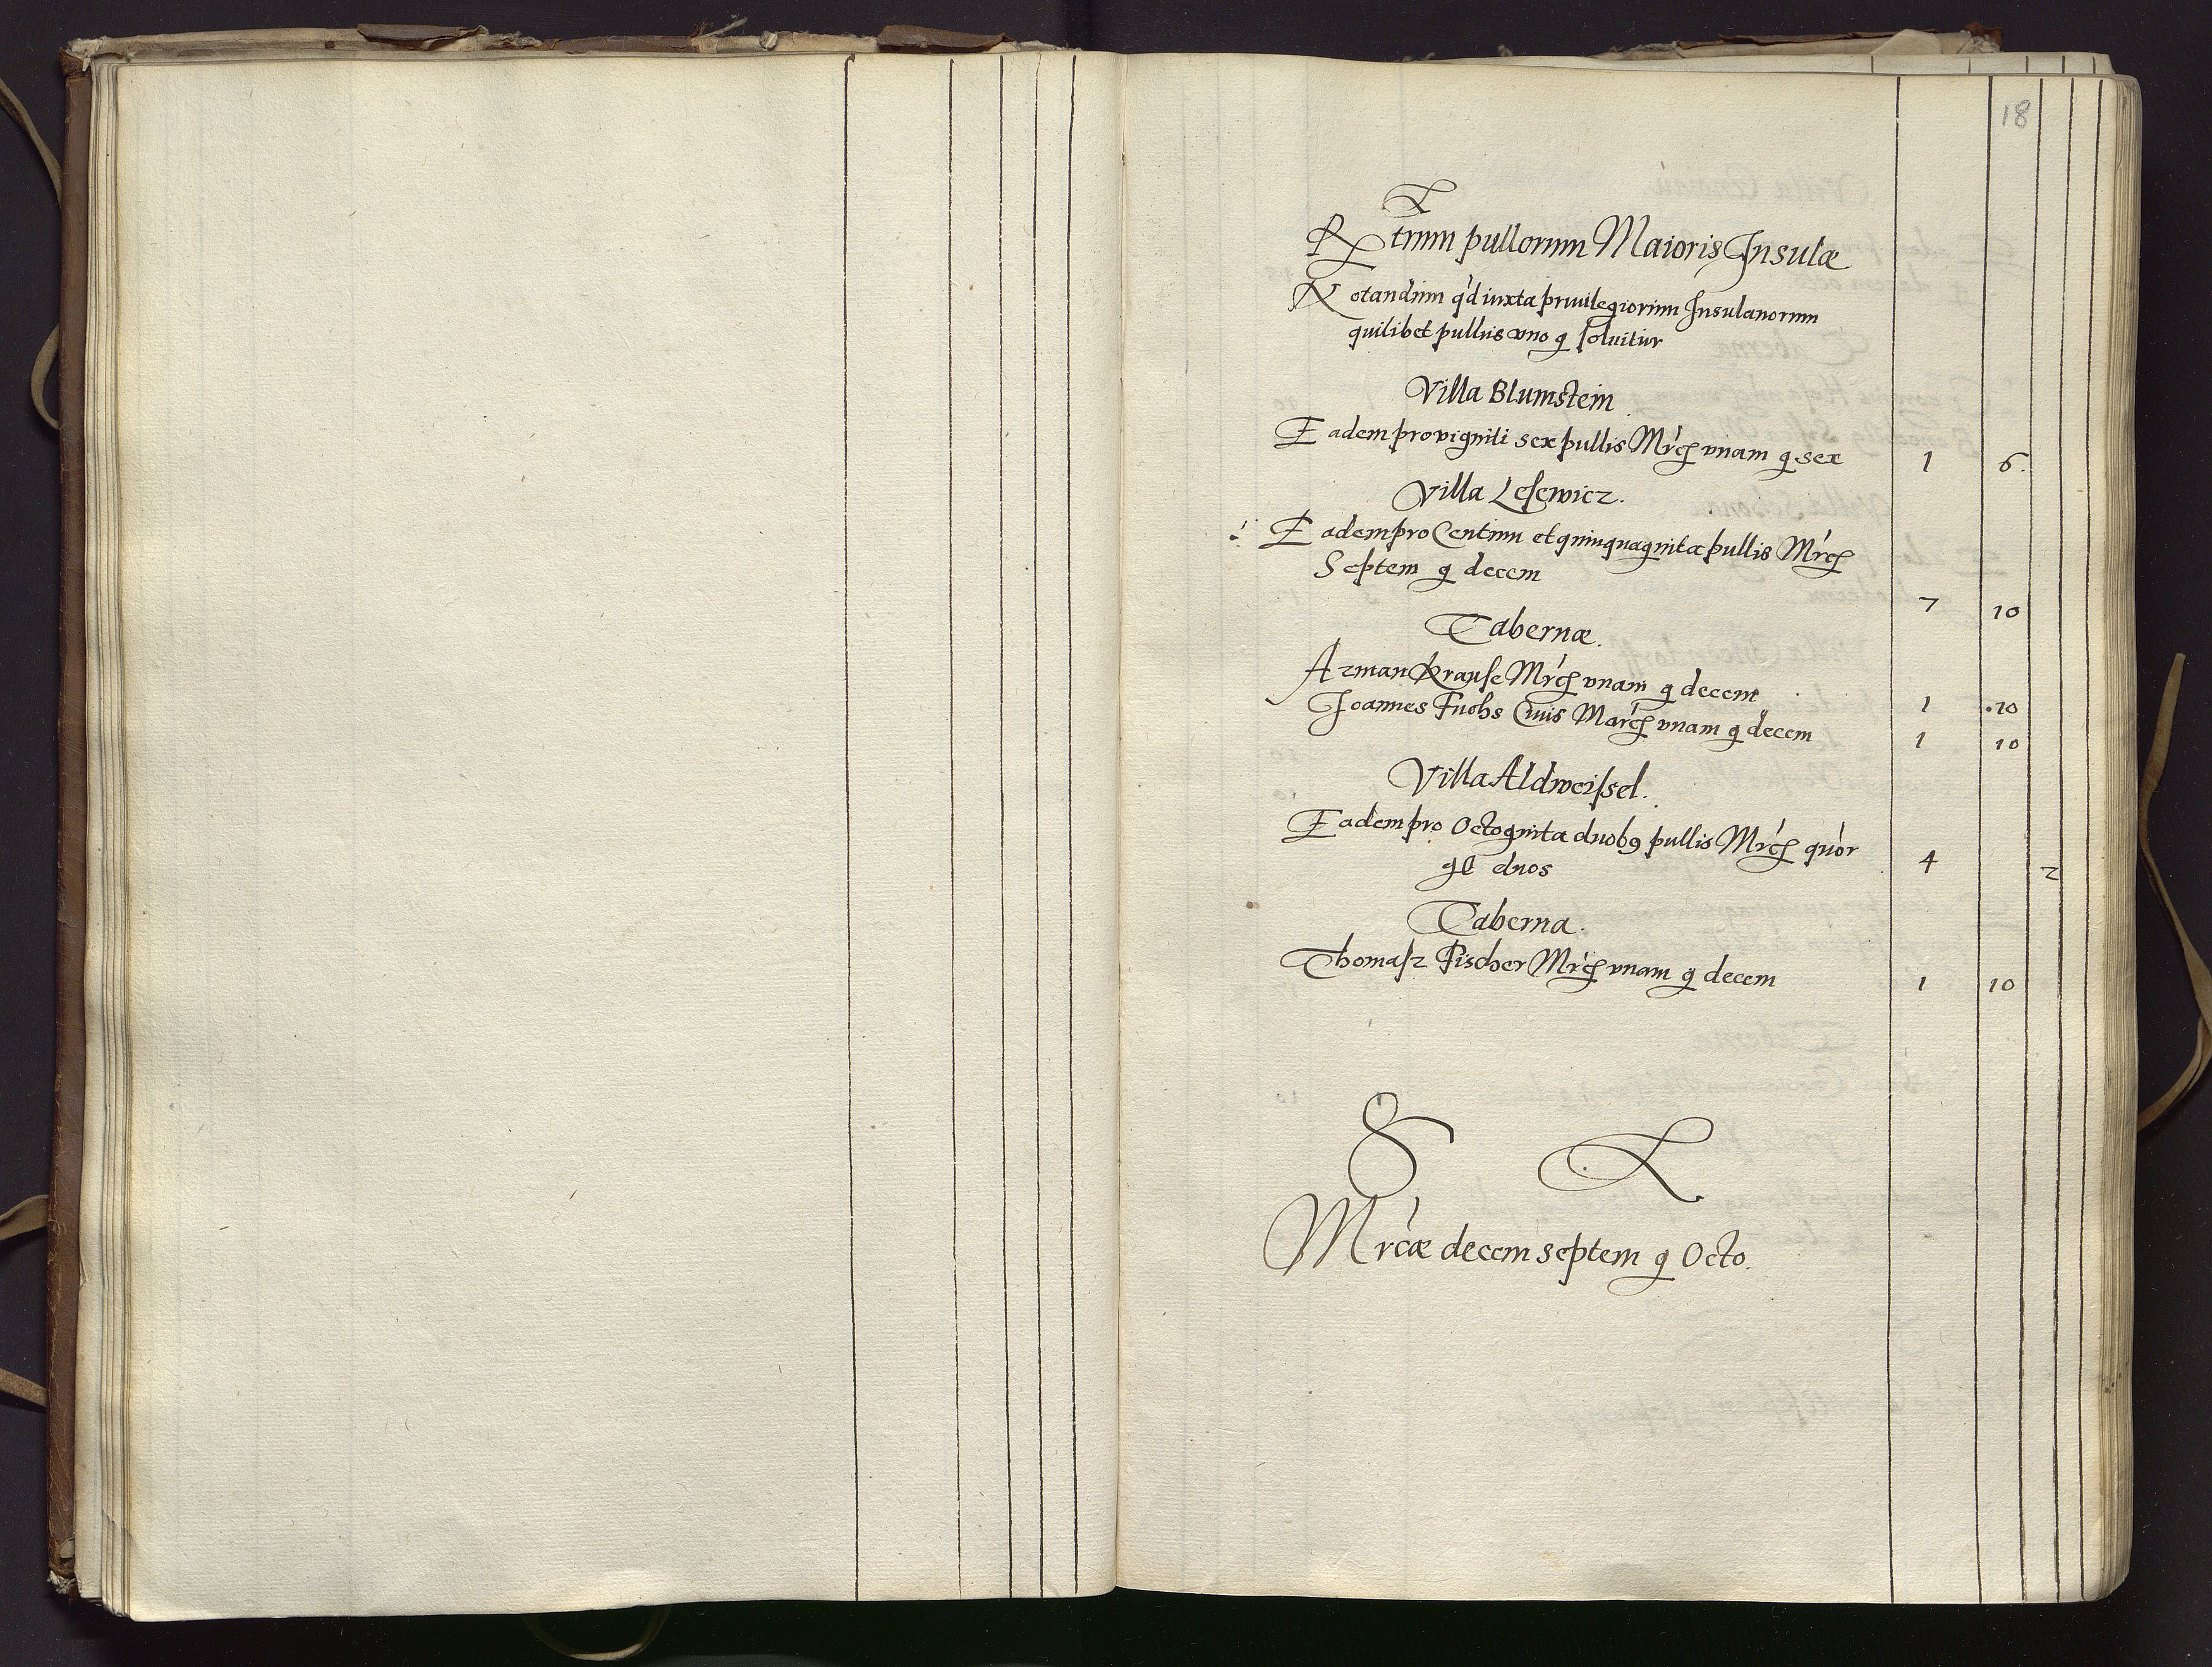 18
Rtrum pullorum Maioris Insulæ
Notandum q'd iuxta priuilegiorum Insulanorum
quilibet pullus vno g soluitur
Villa Blumstein
Eadem pro viginti sex pullis Mrc vnam g sex 1 6.
Villa Lesewicz.
Eadem pro Centum et quinquaginta pullis Mrc
Septem g decem 7 10
Tabernæ.
Arman Krause Mrc vnam g decem 1 .10
Joannes Fuchs Ciuis Marc vnam g decem 1 10
Villa Aldweissel.
Eadem pro Octoginta duobg pullis Mrc quor 4
duos 2
Taberna.
Thomasz Fischer Mrc vnam g decem 1 10
S
Mrcæ decem septem g Octo.